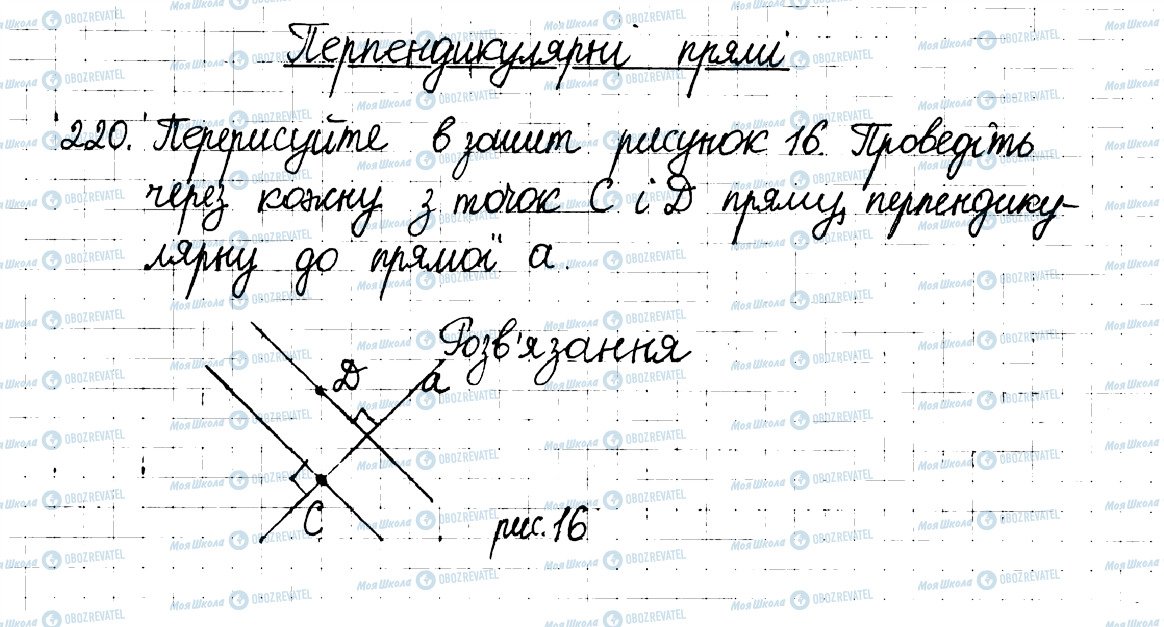 Перпендикулярні прямі
220. Перерисуйте в зошит рисунок 16. Проведіть
через кожну з точок C і D пряму, перпендику-
лярну до прямої a.
Розв'язання
D
a
C
рис. 16
МояШкола OBOZREVATEL